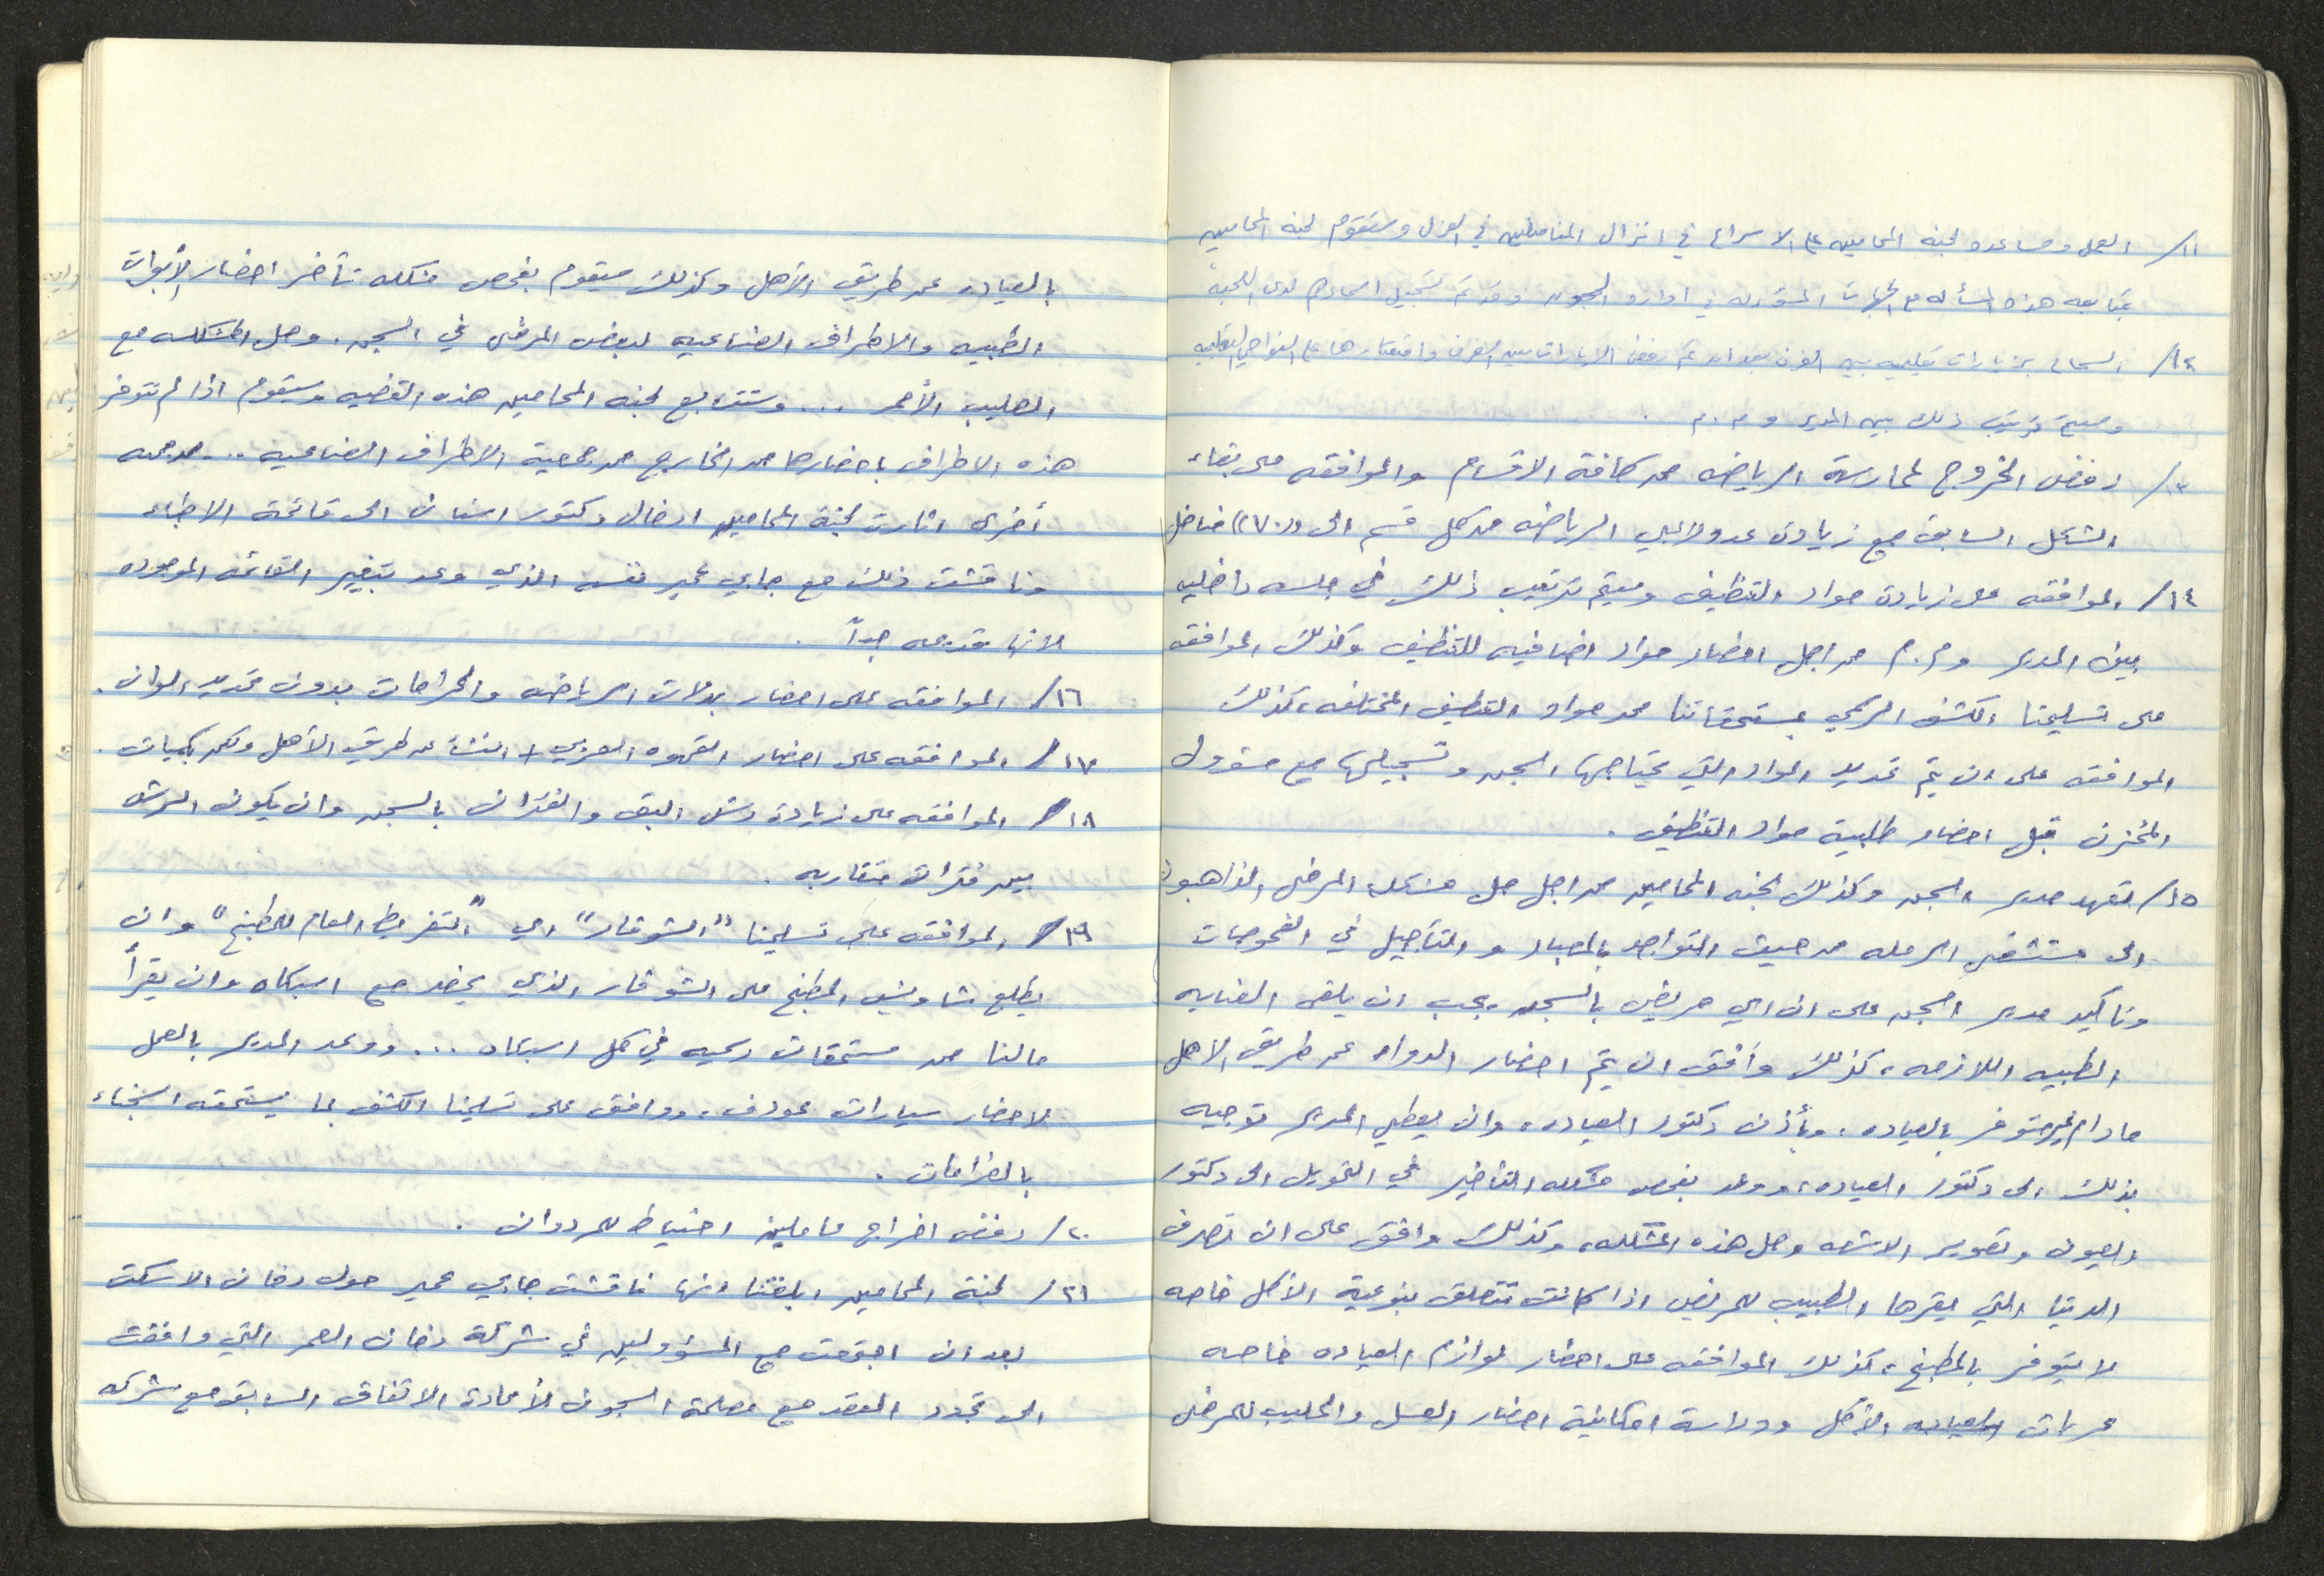 ١١/ العمل ومساعده لجنه المحاميين على الاسراع في انزال المناضلين في العزل وستقوم لجنه المحاميين
بمتابعه هذه المسأله مع الجهات المسؤوله في اداره السجون وقد تم تسجيل اسماءهم لدى اللجنة
١٢/ السماح بزيارات تعليميه بين الغرف بعد ان تم رفض الزيارات بين الغرف واقتصارها على النواحي التعليميه
وسيتم ترتيب ذلك بين المدير و م.م .
١٣/ رفض الخروج لممارسة الرياضه من كافة الاقسام والموافقه على بقاء
الشكل السابق مع زيادة عدد لاعبي الرياضه من كل قسم الى ((٧٠)) مناضل
١٤/ الموافقه على زيادة مواد التنظيف وسيتم ترتيب ذلك في جلسه داخليه
بين المدير و م.م من اجل احضار مواد اضافيه للتنظيف وكذلك الموافقه
على تسليمنا الكشف الرسمي بمستحقاتنا من مواد التنظيف المختلفه، كذلك
الموافقه على ان يتم تحديد المواد التي يحتاجها السجن وتسجيلها مع مسؤول
المخزن قبل احضار طلبية مواد التنظيف .
١٥/ تعهد مدير السجن وكذلك لجنه المحامين من اجل حل مشكلة المرضى الذاهبون
الى مستشفى الرمله من حيث التواجد بالمعبار والتأجيل في الفحوصات
وتأكيد مدير السجن على ان اي مريض بالسجن يجب ان يلقى العنايه
الطبيه اللازمه، كذلك وافق ان يتم احضار الدواء عن طريق الاهل
مادام غير متوفر بالعياده. وبأذن دكتور العياده، وان يعطي المدير توجيه
بذلك الى دكتور العياده، ووعد بفحص مشكله التأخير في التحويل الى دكتور
العيون وتصوير الاشعه وحل هذه المشكله، وكذلك وافق على ان تصرف
الديتا التي يقرها الطبيب للمريض اذا كانت تتعلق بنوعية الأكل خاصه
لا يتوفر بالمطبخ، كذلك الموافقه على احضار لوازم العياده خاصه
عربات الأكل ودراسة امكانية احضار العسل والحليب للمرضى
بالعياده عن طريق الأهل وكذلك سيقوم بفحص مشكله تأخر احضار الأدوات
الطبيه والاطراف الصناعيه لبعض المرضى في السجن. وحل المشكله مع
الصليب الأحمر ... وستتابع لجنه المحامين هذه القضيه وستقوم اذا لم تتوفر
هذه الاطراف باحضارها من الخارج من جمعية الاطراف الصناعيه ... من جهه
أخرى اثارت لجنة المحامين ادخال دكتور اسنان الى قائمة الاطباء
وناقشت ذلك مع جابي عمير نفسه الذي وعد بتغيير القائمه الموجوده
لانها قديمه جداً .
١٦/ الموافقه على احضار بدلات الرياضه والحرامات بدون تحديد الوان .
١٧/ الموافقه على احضار القهوه العربي + النشا عن طريق الأهل ولكن بكميات .
١٨/ الموافقه على زيادة رش البق والفئران بالسجن وان يكون الرش
بين فترات متقاربه .
١٩/ الموافقه على تسليمنا "الشوفار" اي "التفريط العام للمطبخ" وان
يطلع شاويش المطبخ على الشوفار الذي يحضر مع اسبكاه وان يقرأ
مالنا من مستحقات رسميه في كل اسبكاه ... ووعد المدير بالعمل
لاحضار سيارات عودف. ووافق على تسليمنا الكشف بما يستحقه السجناء
بالغرامات .
٢٠/ رفض اخراج عاملين احتياط للمردوان .
٢١/ لجنة المحامين ابلغتنا انها ناقشت جابي عمير حول دخان الاسكت
بعد ان اجتمعت مع المسؤولين في شركة دخان العمر التي وافقت
الى تجدد العقد مع مصلحة السجون لأعادة الاتفاق السابق مع شركه